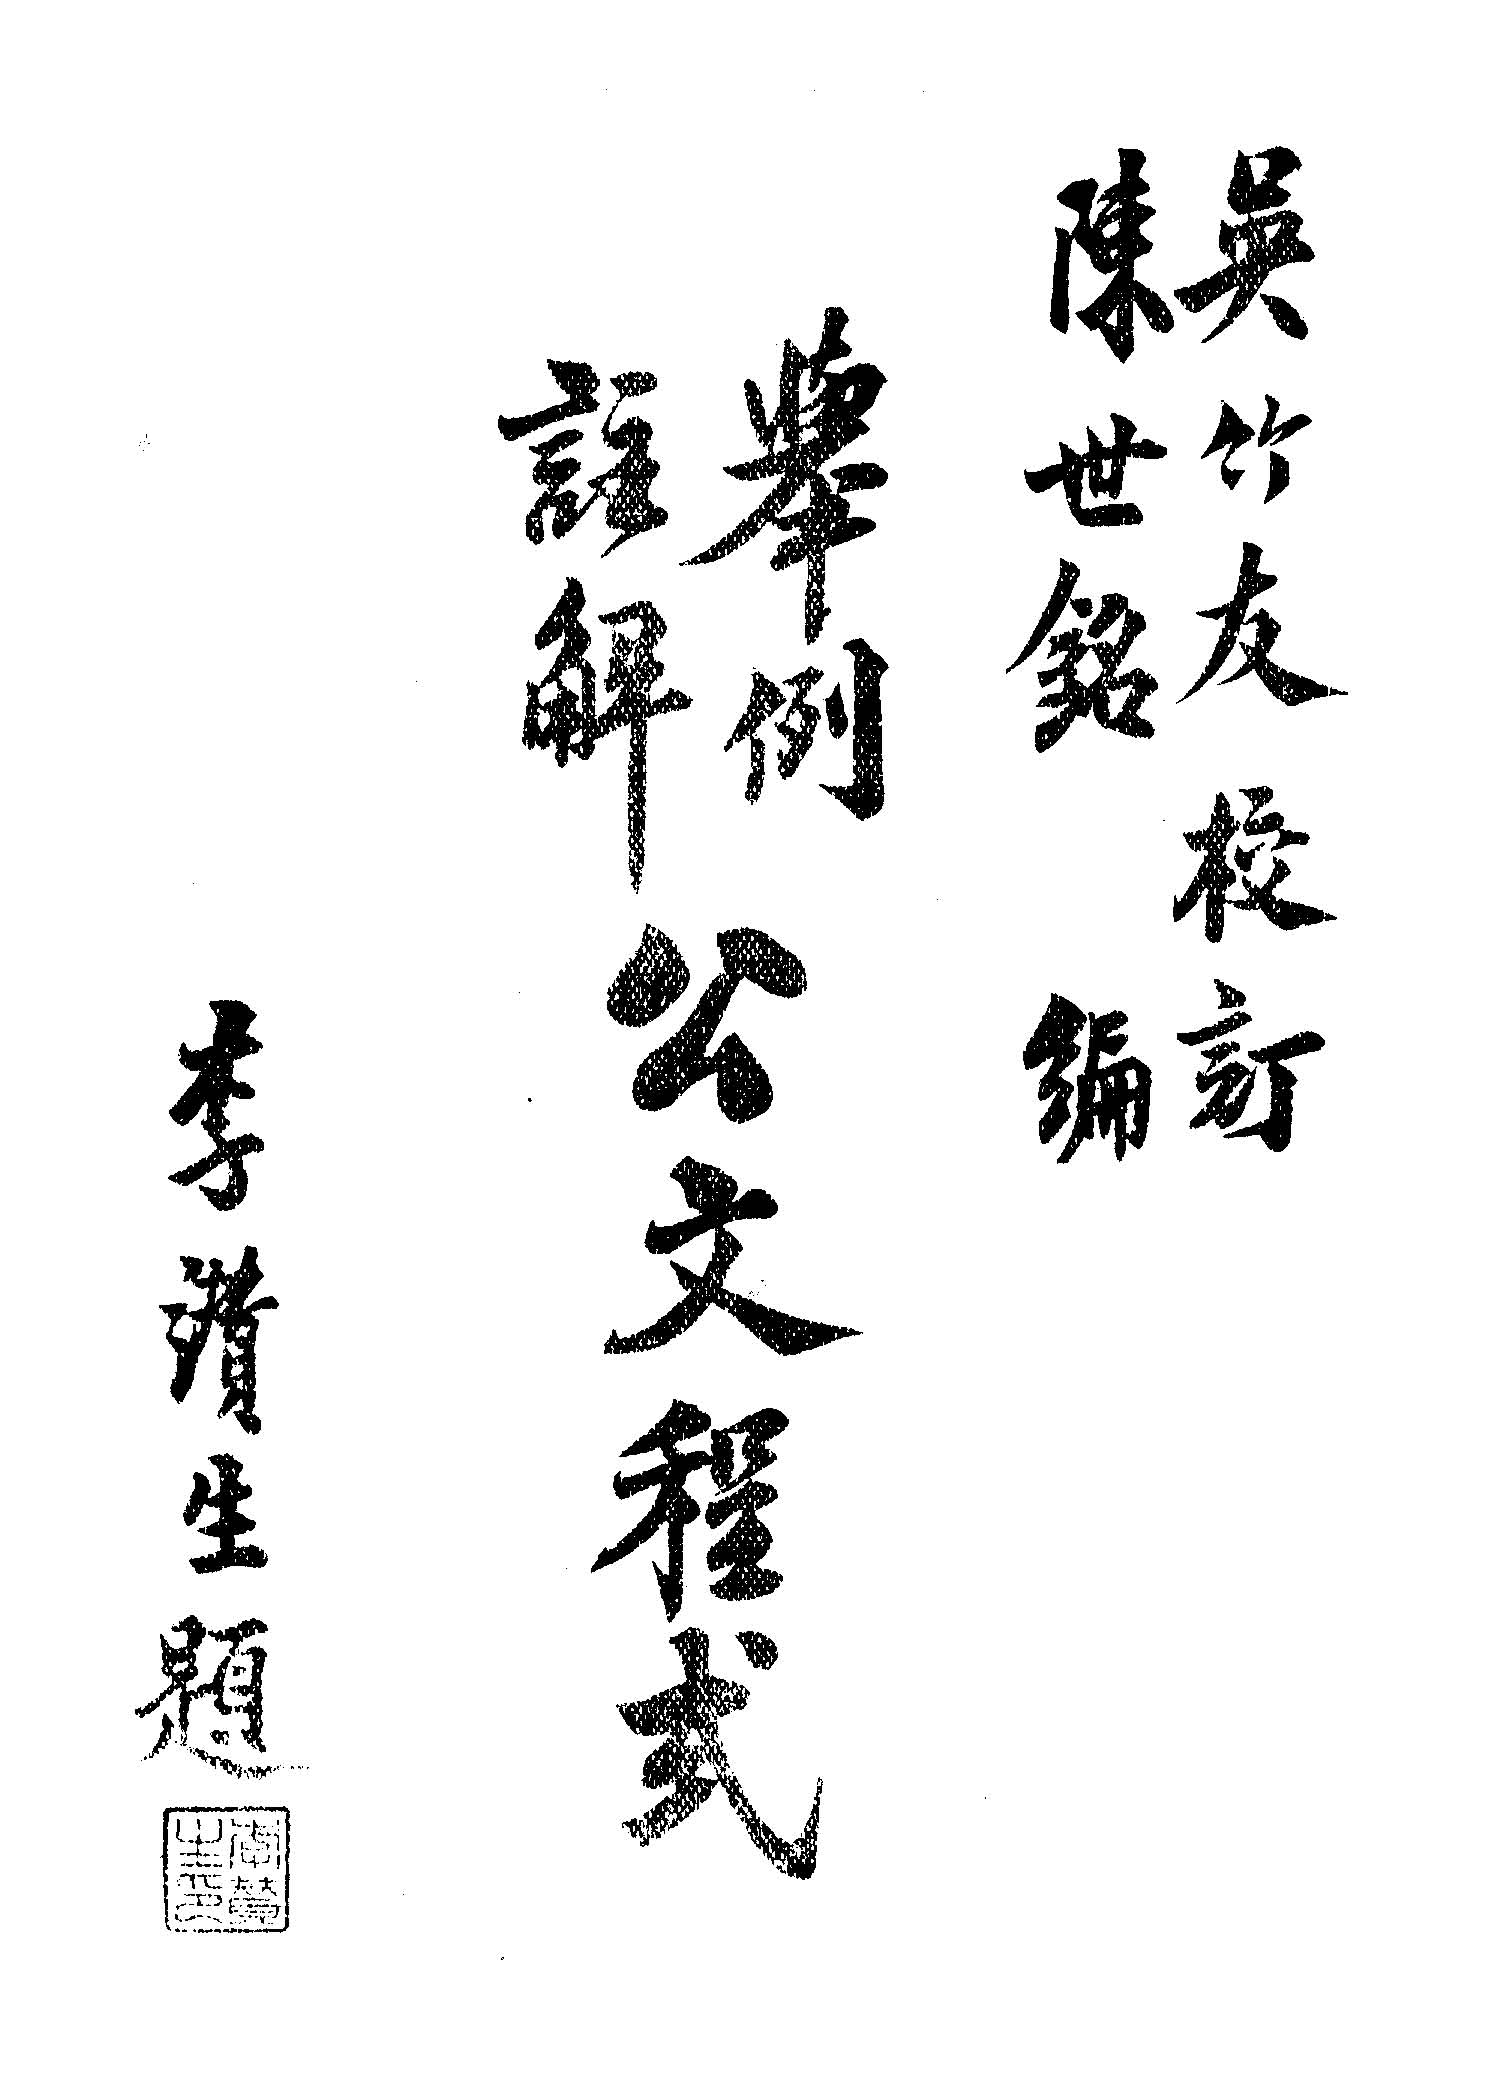 吳竹友 校訂
陳世銘 編
舉例
註解
公文程式
李 生題